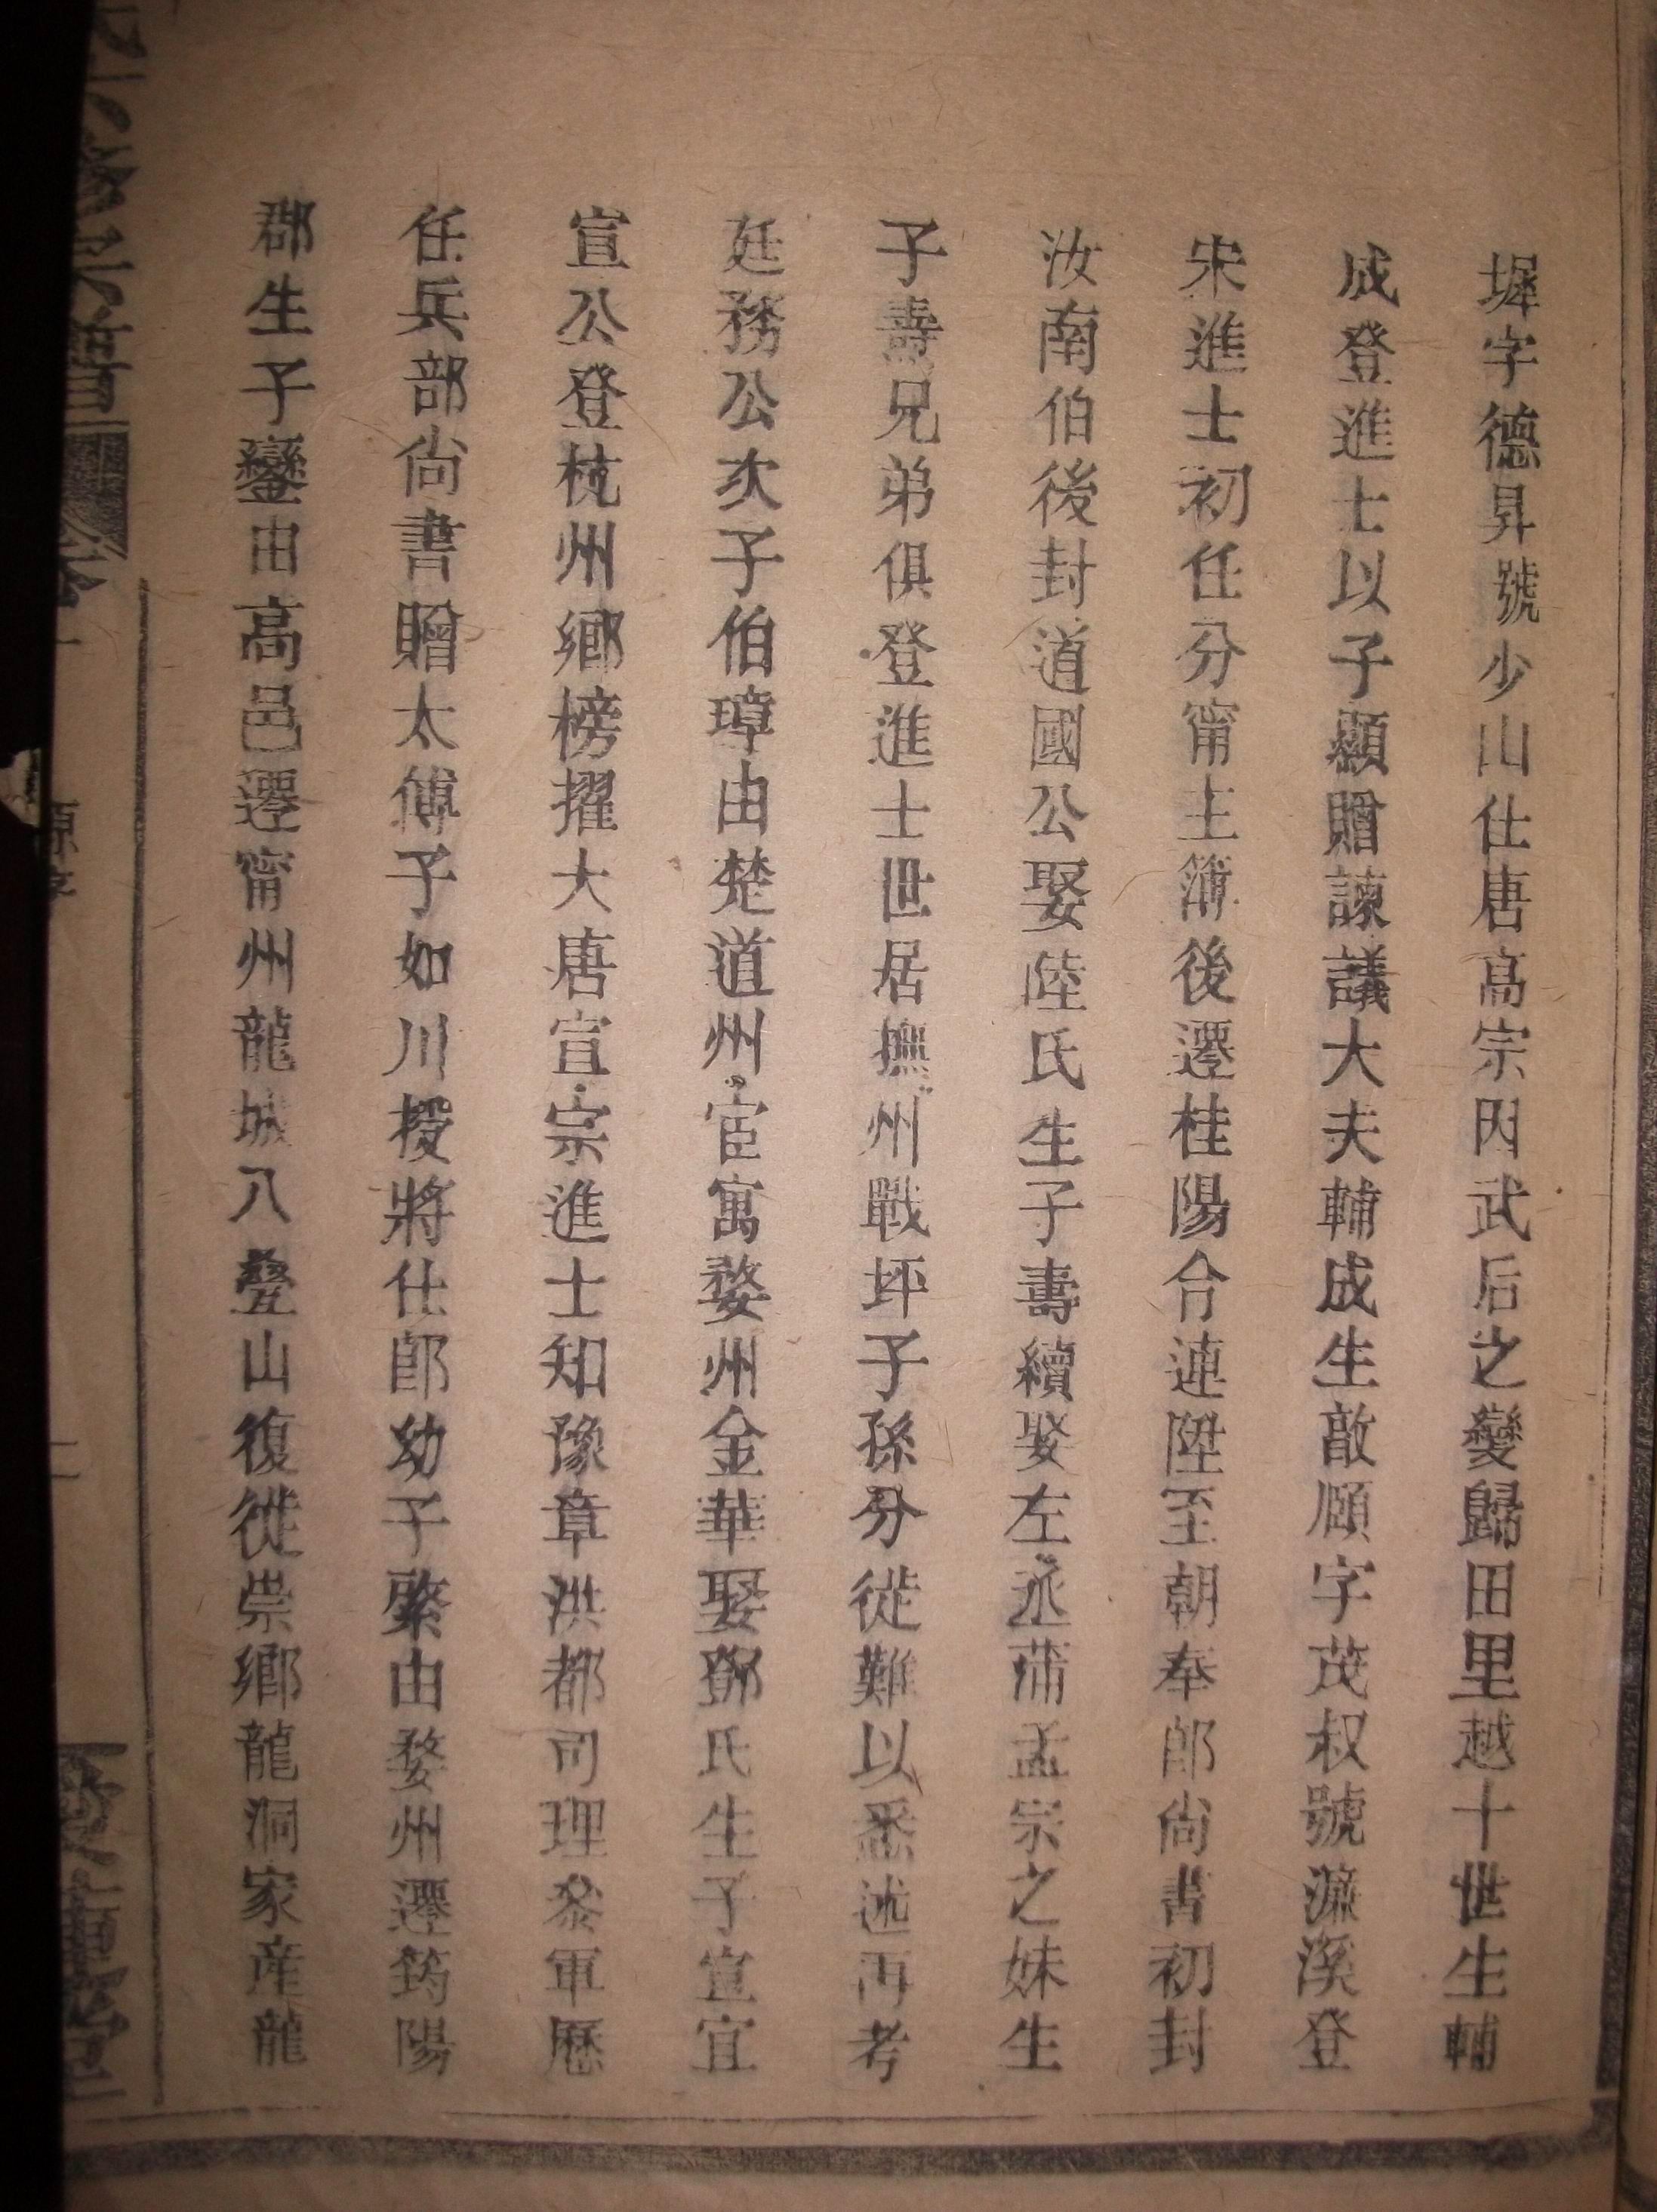 墀字德昇號少山仕唐高宗因武后之變歸田里越十世生輔
成登進士以子顯贈諫議大夫輔成生敦頤字茂叔號濂溪登
宋進士初任分甯主簿後遷桂陽令連陞至朝奉郎尙書初封
汝南伯後封道國公娶陸氏生子壽續娶左丞蒲孟宗之妹生
子燾兄弟俱登進士世居撫州戰坪子孫分徙難以悉述再考
廷務公次子伯璋由楚道州宦寓婺州金華娶鄧氏生子宣宜
宣公登杭州鄉榜擢大唐宣宗進士知豫章洪都司理叅軍歷
任兵部尙書贈太傅子如川授將仕郎幼子綮由婺州遷筠陽
郡生子鑾由高邑遷甯州龍城八疊山復徙崇鄉龍洞家産龍
原序
二
愛蓮堂